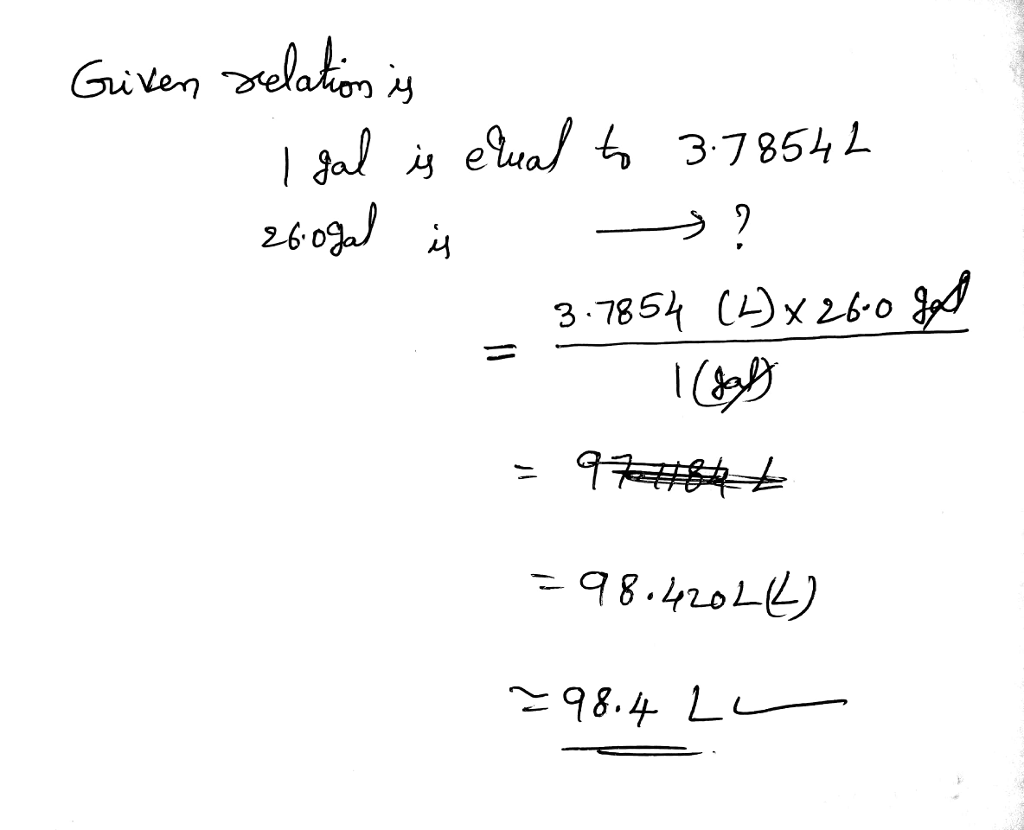 Given relation is
1 gal is equal to 3.7854 L
26.0gal is → ?
= 3.7854 (L) x 26.0 gal
1 (gal)
= 97.1184 L
= 98.4202 (L)
≃ 98.4 L